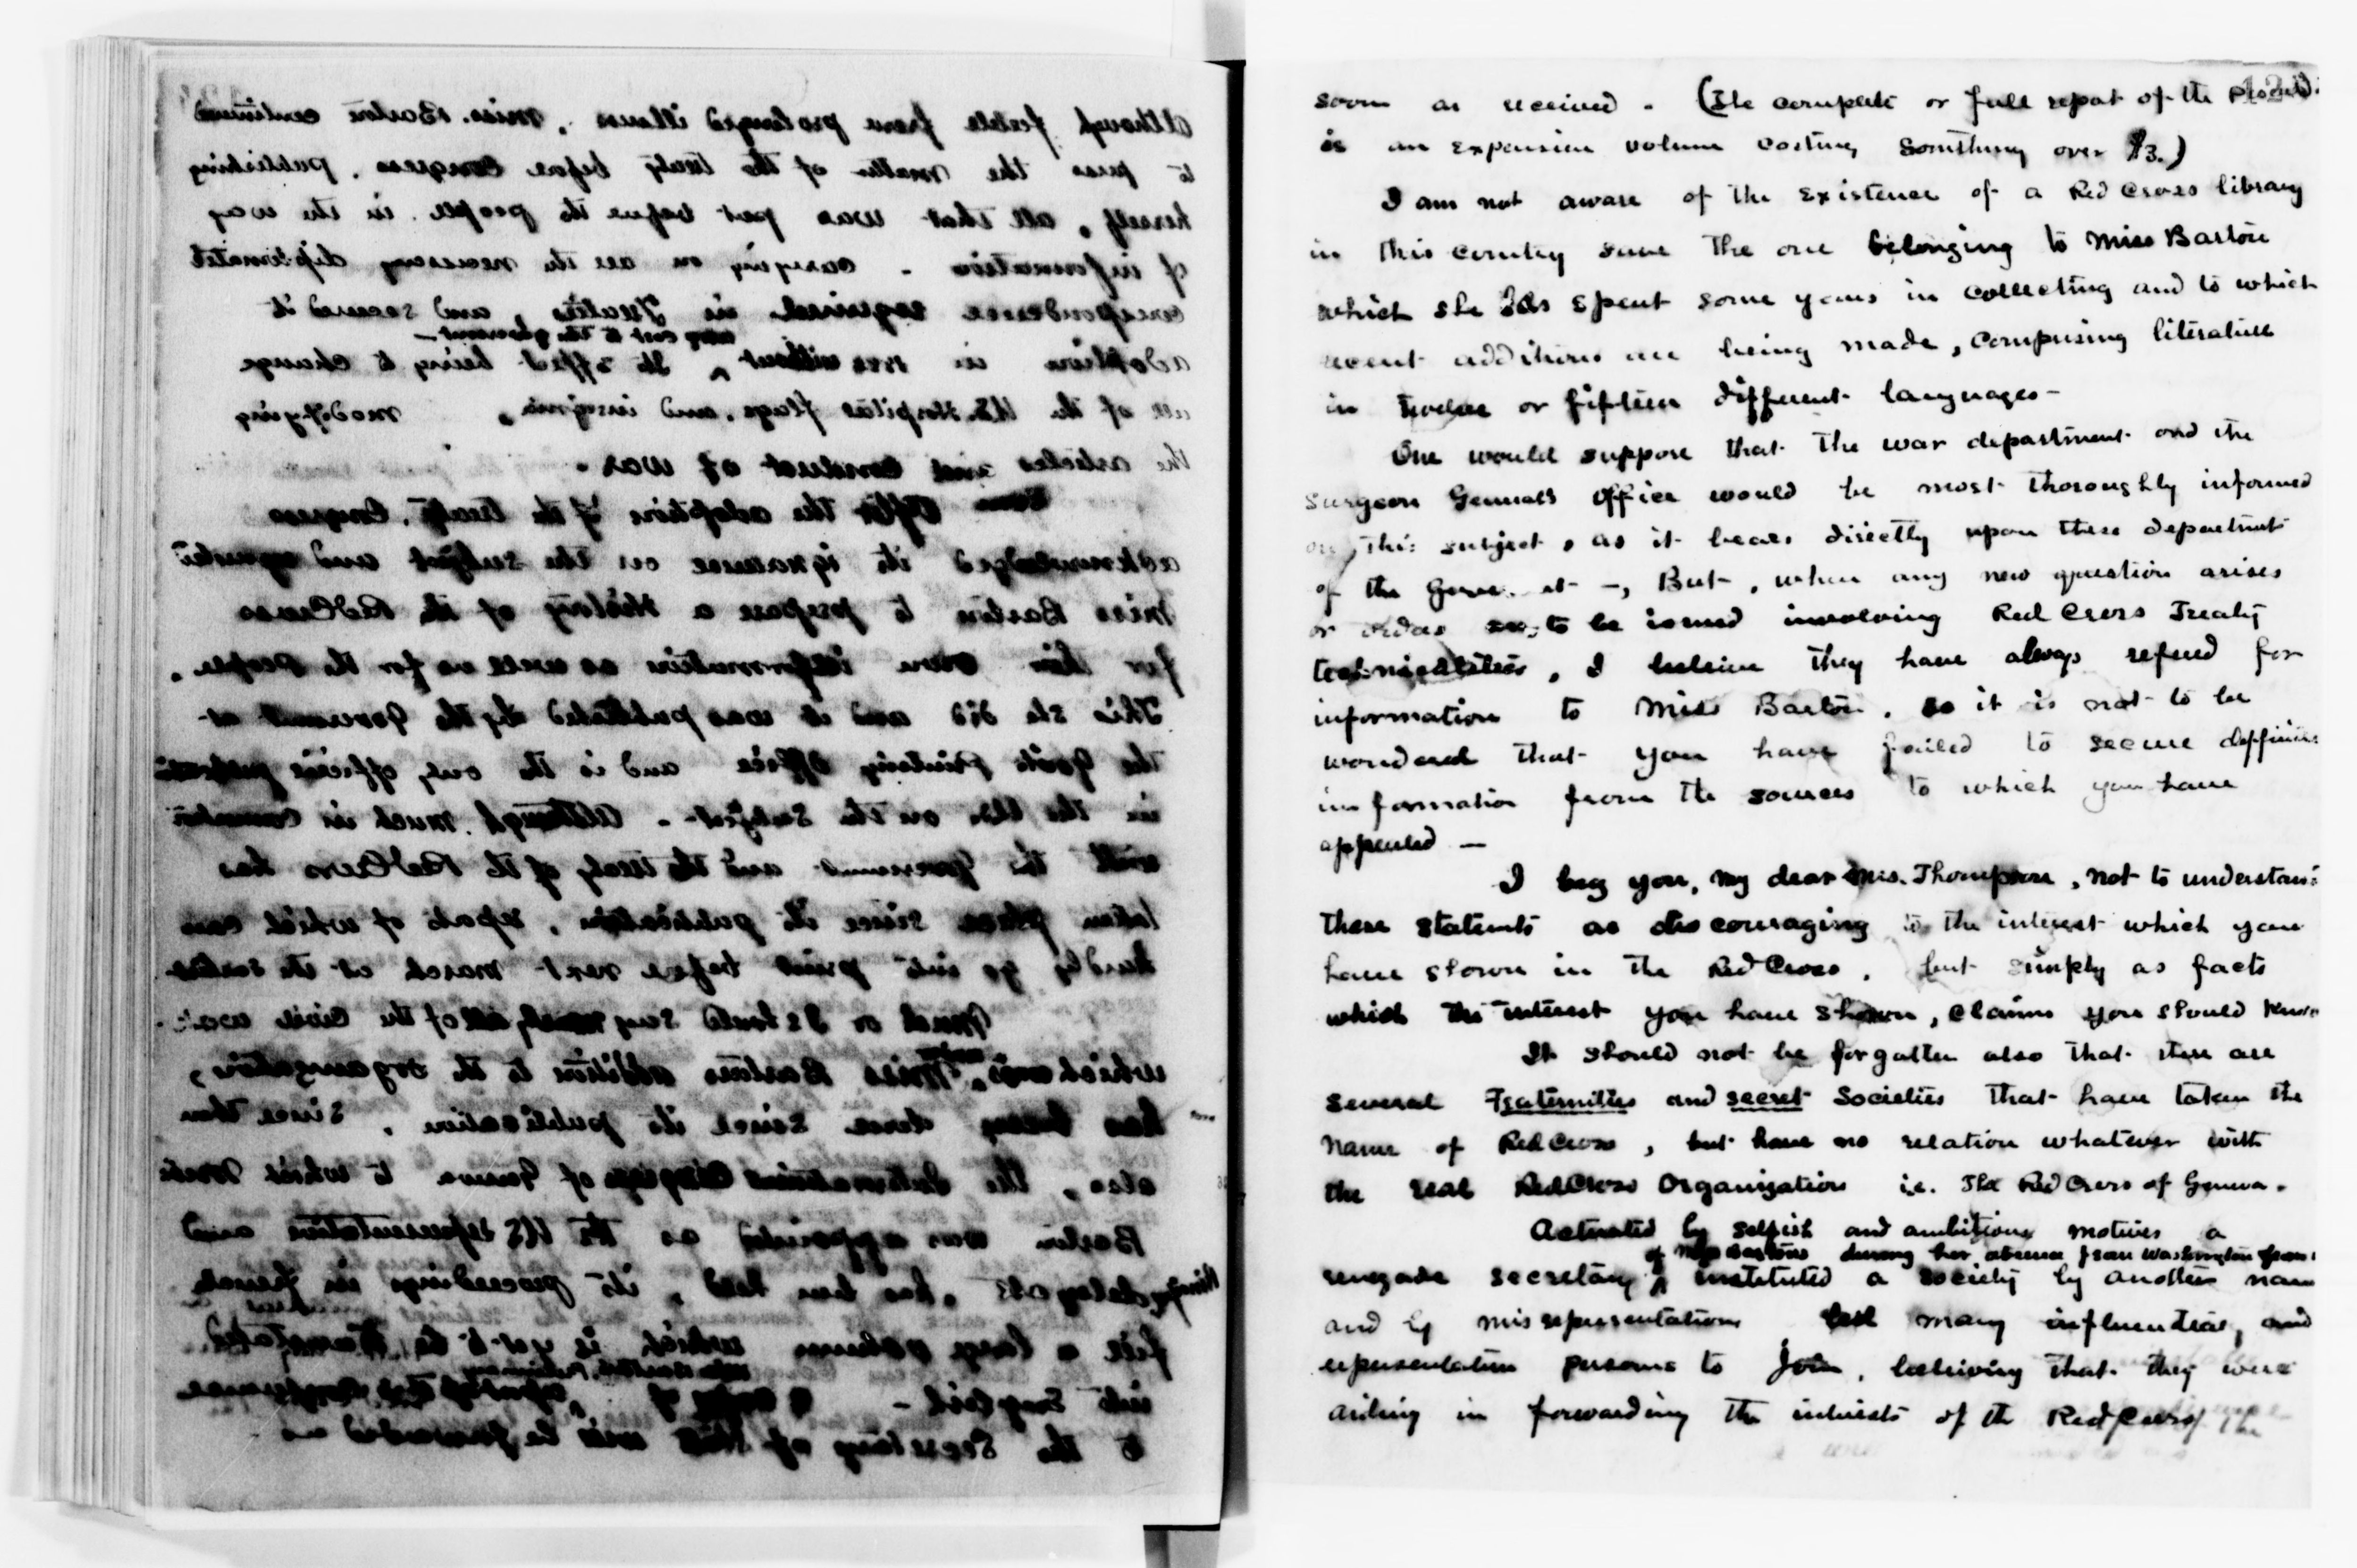 Although feeble from prolonged illness, Miss. Barton continued
to press the matter of the treaty before Congress, publishing
herself, all that was put before the people, in the way
of information - carrying on all the necessary diplomatic
correspondence required in Treaties, and secured it
any cost to the government -
adoption in without ^ Its effect being to change
all of the U.S. Hospital flags, and insignia, modifying
the articles and conduct of war.
After the adoption of the treaty, Congress
acknowledged its ignorance on the subject and
Miss Barton to prepare a History of the Red Cross
for their own information as well as for the People.
This she did and it was published by the Government at
the Govt Printing Office and is the only official
in the U.S. on the subject - Although much in connection
with the government and the treaty of the Red Cross has
taken place since its publication, reports of which can
hardly go into print before next March at the earliest
Much or I should say all of the civil work
which Miss Barton addition to the organization,
has been done since its publication, since then
also, the International Congress of Geneva to which Miss
Barton was appointed as the US representative and
delegate, has been held, its proceedings in French
fill a large volume which is yet to be translated
into English - A copy of
to the Secretary of State will be forwarded as
soon as received - (The complete or full report of the
is an expensive volume costing something over $3.)
I am not aware of the existence of a Red Cross library
in this country save the one belonging to Miss Barton
which she has spent some years in collecting and to which
recent additions are being made, comprising literature
in twelve or fifteen different languages -
One would suppose that the war department and the
Surgeon Generals Office would be most thoroughly informed
on this subject, as it bears directly upon these departments
of the -, But, when any new question arises
or orders are to be issued involving Red Cross Treaty
technicalities, I believe they have always refered for
information to Miss Barton, so it is not to be
wondered that you have failed to secure
information from the sources to which you have
appealed -
I beg you, my dear Mrs. Thompson, not to understand
these statements as discouraging to the interest which you
have shown in the Red Cross, but simply as facts
which the interest you have shown, claims you should know
It should not be forgotten also that there are
several Fraternities and secret Societies that have taken the
name of Red Cross, but have no relation whatever with
the real Red Cross Organization i.e. The Red Cross of Geneva.
Actuated by selfish and ambitious motives a
of Miss Bartons during her absence from Washington
renegade secretary ^ instituted a society by another name
and by misrepresentations led many influential, and
representative persons to join, believing that they were
aiding in forwarding the interests of the Red Cross. The